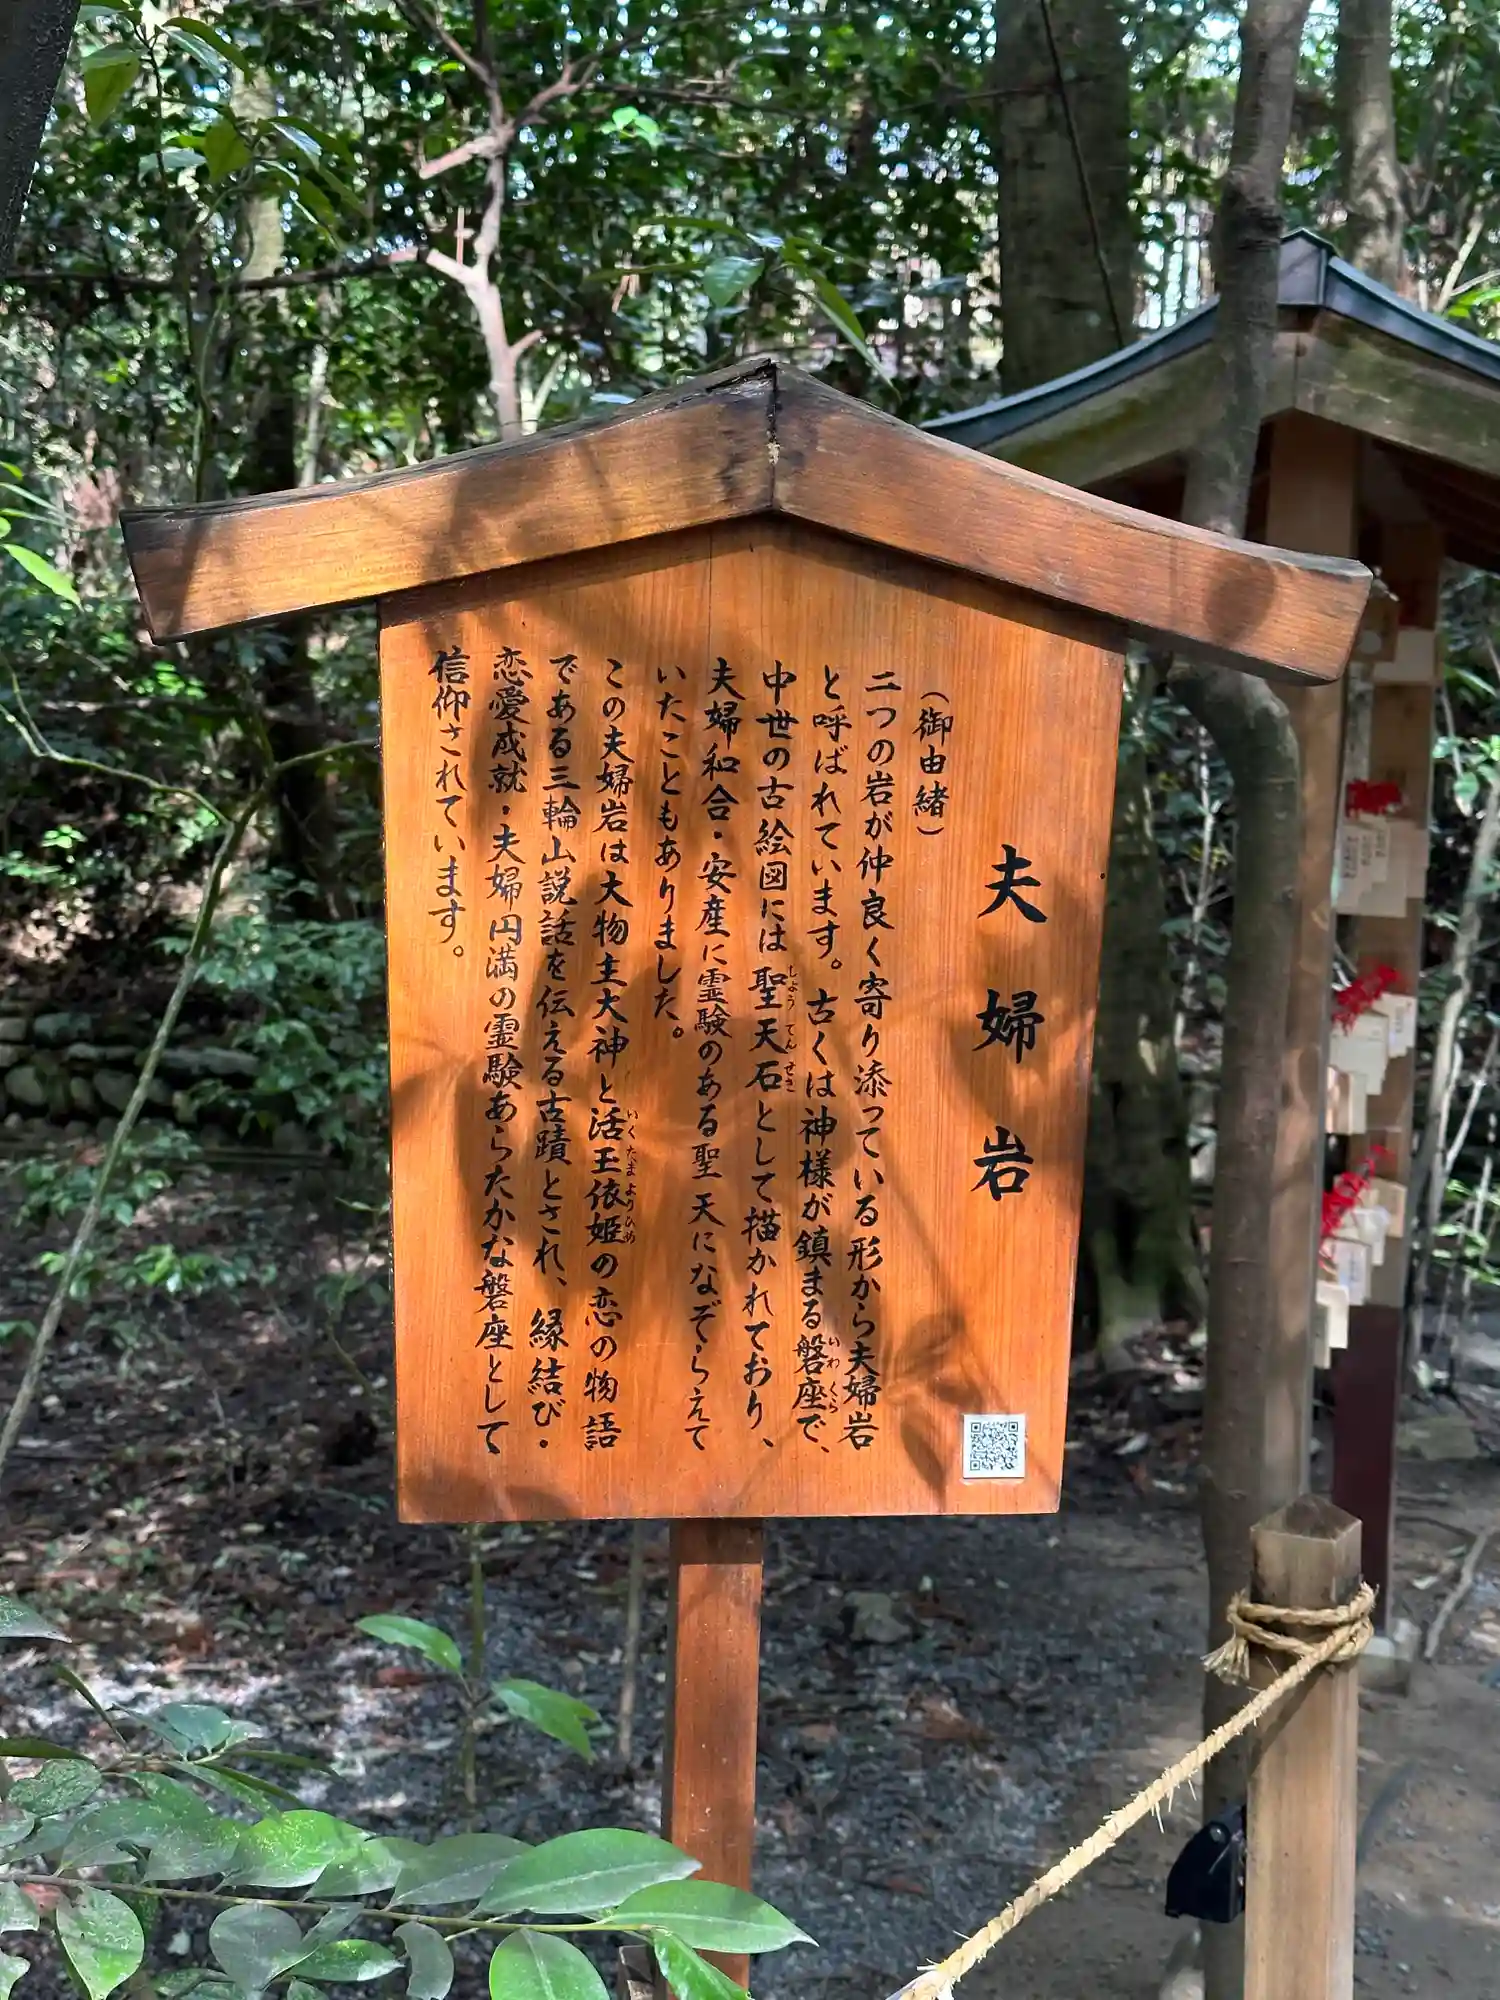 夫婦岩
（御由緒）
二つの岩が仲良く寄り添っている形から夫婦岩
と呼ばれています。古くは神様が鎮まる磐座で、
いわくら
中世の古絵図には聖天石として描かれており、
しょうてんせき
夫婦和合・安産に霊験のある聖天になぞらえて
いたこともありました。
この夫婦岩は大物主大神と活玉依姫の恋の物語
いくたまよりひめ
である三輪山説話を伝える古蹟とされ、縁結び・
恋愛成就・夫婦円満の霊験あらたかな磐座として
信仰されています。